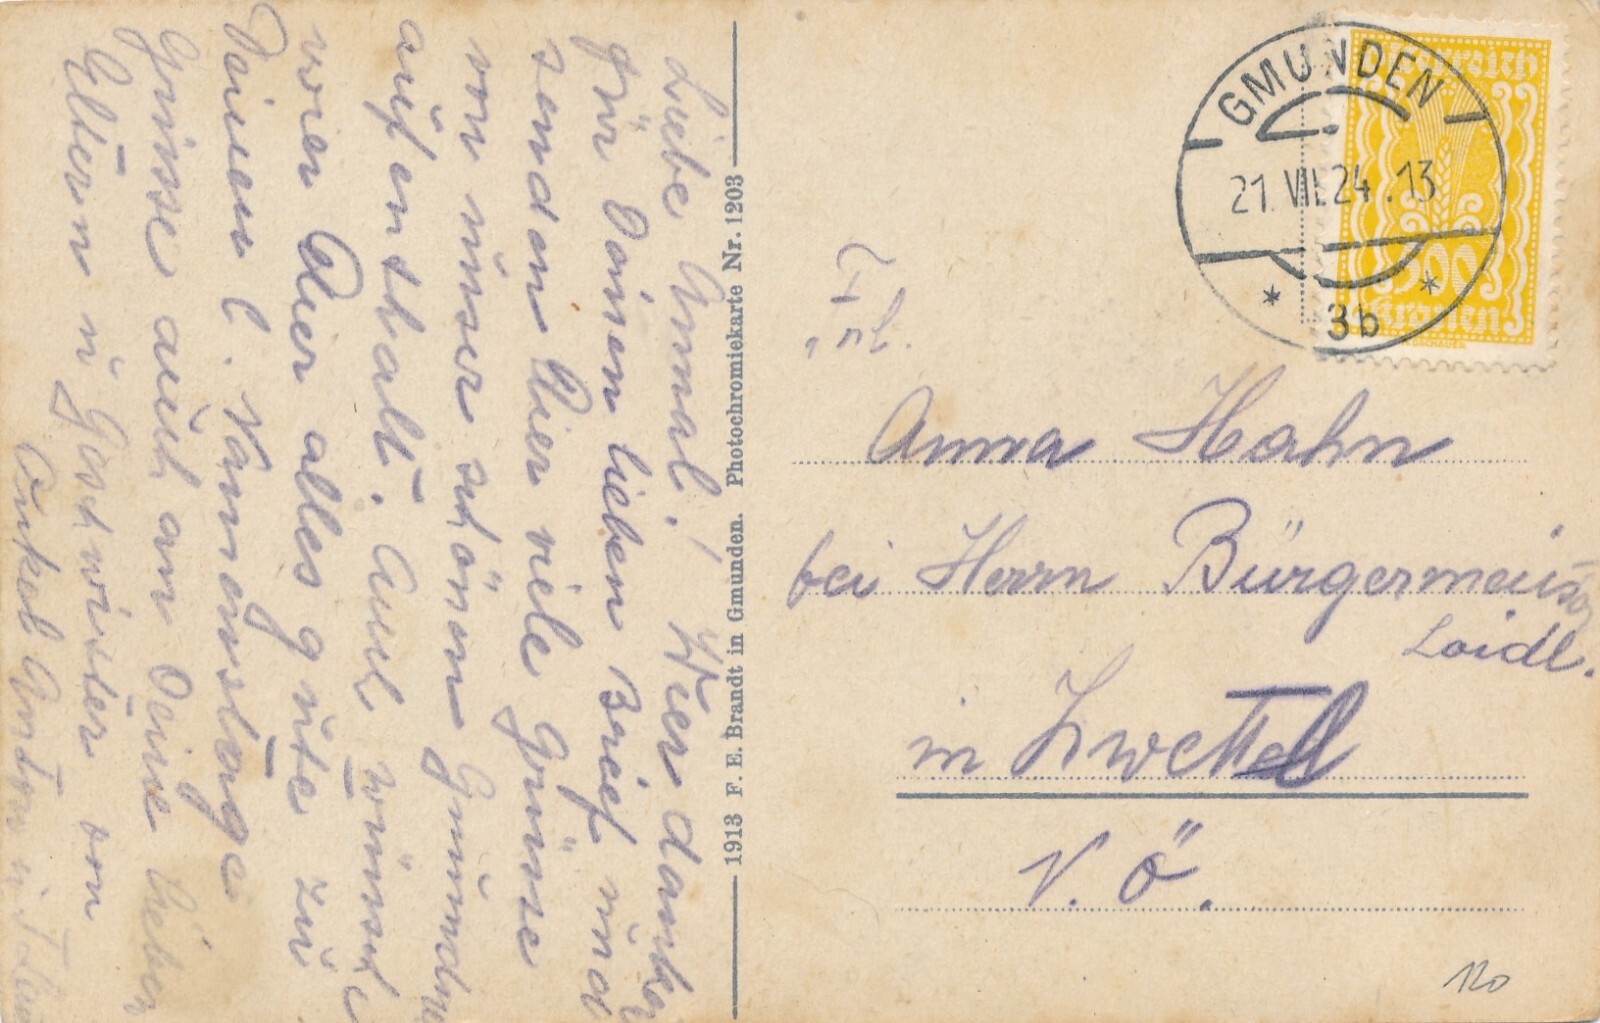 Liebe Annal! Wier danken
für Deinen lieben Brief und
senden Dier viele Grüsse
von unser schönen Gmundner
aufenthalt. Auch wünschen
wier Dier alles gute zu
Deinen l. Namenstage
Grüsse auch an Deine lieben
Eltern u Geschwister von
Onkel Anton u
1913 F. E. Brandt in Gmunden. Photochromiekarte Nr. 1203
GMUNDEN
21.VII.24.13
* 3b *
Österreich
Kronen
Anna Hahn
bei Herrn Bürgermeister
Loidl.
in Zwettl
N. Ö.
120